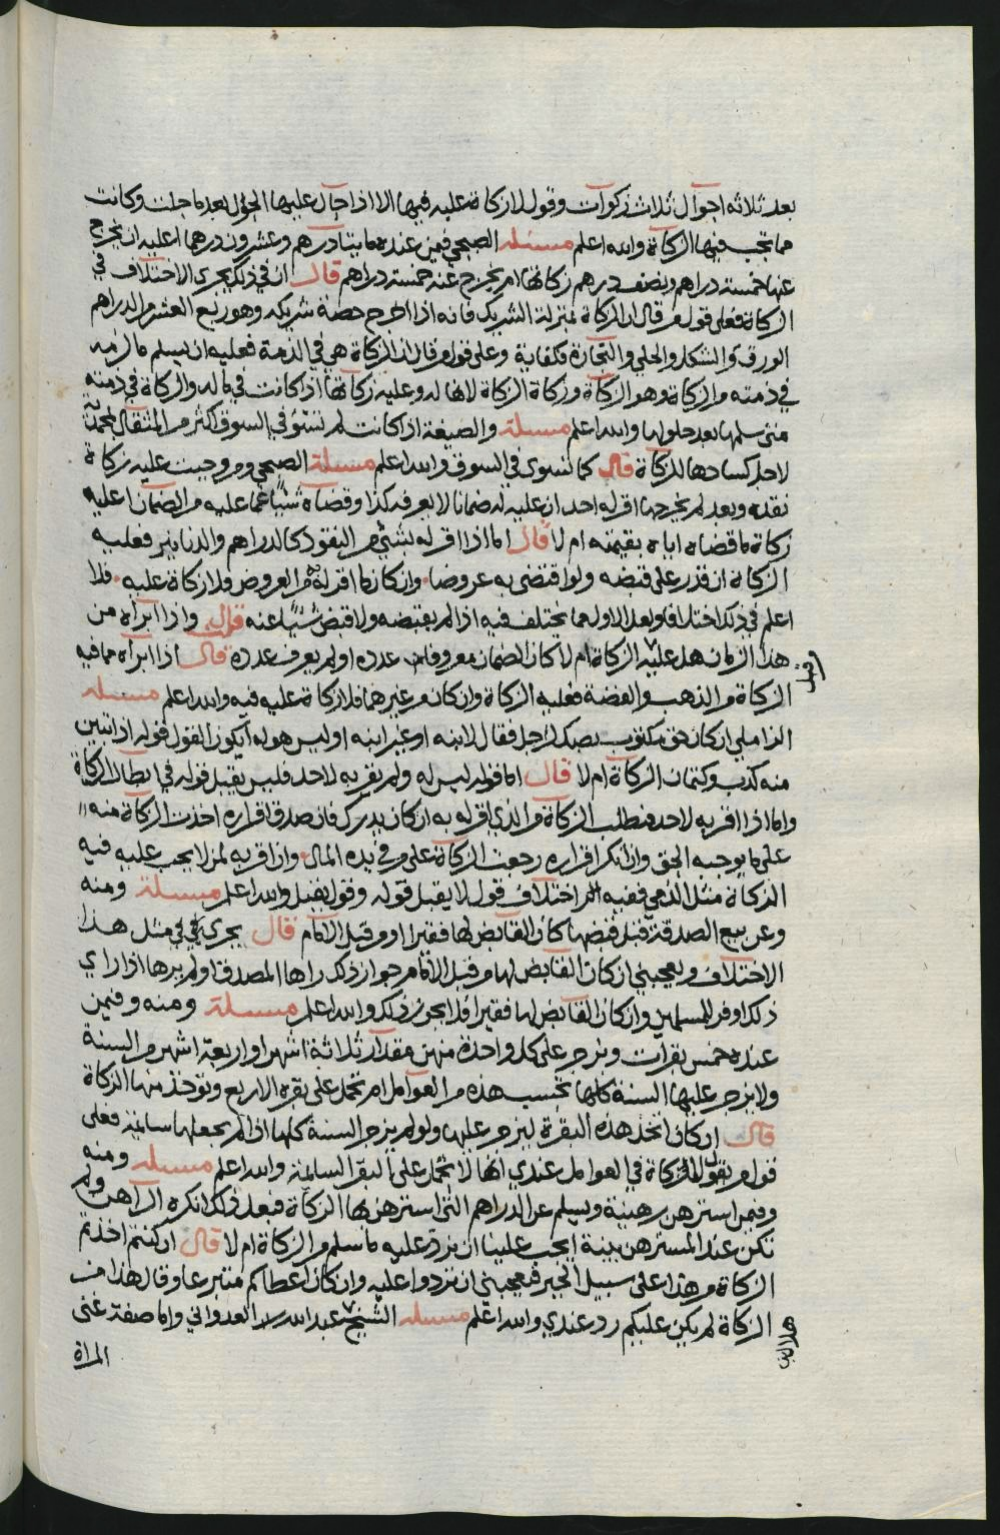 بعد ثلاثه احوال ثلاث زكوات وقول لا زكاة عليه فيها الا اذا حال عليها الحول بعد ما حلت وكانت
مما تجب فيها الزكاة والله اعلم مسئله الصبحي فيمن عنده مايتا درهم وعشرون درهما اعليه ان يخرج
عنها خمسة دراهم ونصف درهم زكاتها ام يخرج عنه خمسة دراهم قال ان في ذلك يجري الاختلاف في
الزكاة فعلى قول من قال ان الزكاة بمنزلة الشريك فانه اذا اخرج حصة شريكه وهو ربع العشر من الدراهم
الورق والشكد والحلي والتجارة فكفاية وعلى قول من قال ان الزكاة هي في الذمة فعليه ان يسلم ما لزمه
في ذمته من الزكاة وهو الزكاة وزكاة الزكاة لانها له وعليه زكاتها اذا كانت في ماله والزكاة في ذمته
متى سلمها بعد حلولها والله اعلم مسئلة والصيغة اذا كانت لم تسوَ في السوق اكثر من المثقال لمحمدية
لاجل كسادها للزكاة قال كما تسوى في السوق والله اعلم مسئلة الصبحي ومن وجبت عليه زكاة
نقده وبعد لم يخرجها اقر له احد ان عليه له ضمانا لا يعرف كذا وقضاه شيئا عما عليه من الضمان اعليه
زكاة ما قضاه اياه بقيمته ام لا قال اما اذا اقر له بشيء من النقود كالدراهم والدنانير فعليه
الزكاة ان قدر على قبضه ولو اقتضى به عروضا وان كان ما اقر له من العروض فلا زكاة عليه فلا
اعلم في ذلك اختلافا ولعل الاول مما يختلف فيه اذا لم يقبضه ولا قبض شيئا عنه قلت واذا ابراه من
هذا الزمان هل عليه الزكاة ام لا كان الضمان معروفا من عدده او لم يعرف عدده قال اذا ابراه مما فيه
الزكاة من الذهب والفضة فعليه الزكاة وان كان من غيرهما فلا زكاة عليه فيه والله اعلم مسئله
الزاملي ان كان حق مكتوب بصك لرجل فقال لابنه او غير ابنه او ليس هو له ايكون القول قوله اذا تبين
منه كذب وكتمان الزكاة ام لا قال اما قوله ليس له ولم يقر به لاحد فليس يقبل قوله في ابطال الزكاة
واما اذا اقر به لاحد فتطلب الزكاة من الذي اقر له به ان كان يدرك فان صدق اقراره اخذت الزكاة منه
على ما يوجبه الحق وان انكر اقراره رجعت الزكاة على من في يده المال وان اقر به لمن لا يجب عليه فيه
الزكاة مثل الذمي ففيه اختلاف قول لا يقبل قوله وقول يقبل والله اعلم مسئلة ومنه
وعن بيع الصدقة قبل قبضها كان القابض لها فقيرا او من قبل الامام قال يجري في مثل هذا
الاختلاف ويعجبني ان كان القابض لها من قبل الامام جواز ذلك راها المصدق او لم يرها اذا راى
ذلك اوفر للمسلمين وان كان القابض لها فقيرا فلا يجوز ذلك والله اعلم مسئلة ومنه وفيمن
عنده خمس بقرات ويزجر على كل واحدة منهن مقدار ثلاثة اشهر او اربعة اشهر من السنة
ولا يزجر عليها السنة كلها تحسب هذه من العوامل ام تحمل على بقره الاربع وتوخذ منها الزكاة
قال ان كان اتخذ هذه البقرة ليزجر عليها ولو لم يزجر السنة كلها اذا لم يجعلها سايمة فعلى
قول من يقول لا زكاة في العوامل عندي انها لا تحمل على البقر السايمة والله اعلم مسئله ومنه
وفيمن استرهن رهينة ويسلم عن الدراهم التي استرهن بها الزكاة فبعد ذلك انكره الراهن ولم
تكن عند المسترهن بينة ايجب علينا ان نرد عليه ما سلم من الزكاة ام لا قال ان كنتم اخذتم
الزكاة من هذا على سبيل الجبر فيعجبني ان تردوا عليه وان كان اعطاكم متبرعا وقال هذا من
الزكاة لم يكن عليكم رد عندي والله اعلم مسئله الشيخ عبدالله العدواني واما صفة غنى
المراة